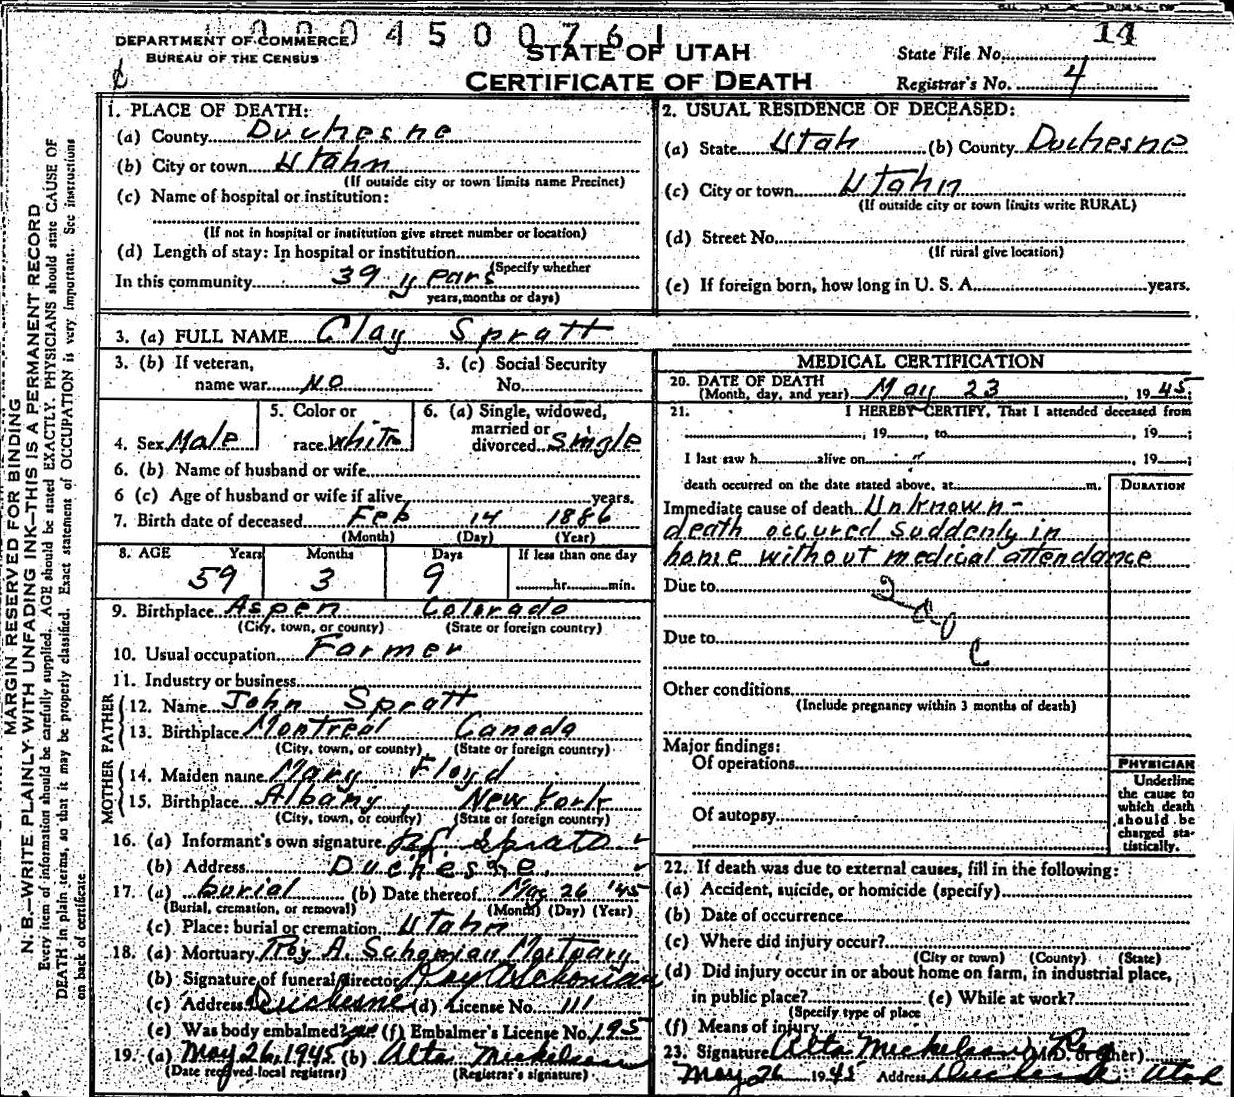 0004500761
14
DEPARTMENT OF COMMERCE
BUREAU OF THE CENSUS
STATE OF UTAH
CERTIFICATE OF DEATH
State File No.
Registrar's No. 4
MARGIN RESERVED FOR BINDING
N. B.—WRITE PLAINLY WITH UNFADING INK—THIS IS A PERMANENT RECORD
Every item of information should be carefully supplied. AGE should be stated EXACTLY. PHYSICIANS should state CAUSE OF
DEATH in plain terms, so that it may be properly classified. Exact statement of OCCUPATION is very important. See instructions
on back of certificate.
1. PLACE OF DEATH:
(a) County Duchesne
(b) City or town Utahn
(If outside city or town limits name Precinct)
(c) Name of hospital or institution:
(If not in hospital or institution give street number or location)
(d) Length of stay: In hospital or institution
(Specify whether
In this community 39 years
years, months or days)
2. USUAL RESIDENCE OF DECEASED:
(a) State Utah (b) County Duchesne
(c) City or town Utahn
(If outside city or town limits write RURAL)
(d) Street No.
(If rural give location)
(e) If foreign born, how long in U. S. A. years.
3. (a) FULL NAME Clay Spratt
3. (b) If veteran,
name war No
3. (c) Social Security
No.
4. Sex Male
5. Color or
race white
6. (a) Single, widowed,
married or
divorced single
6. (b) Name of husband or wife
6 (c) Age of husband or wife if alive years.
7. Birth date of deceased Feb 14 1886
(Month) (Day) (Year)
8. AGE Years Months Days If less than one day
59 3 9 hr. min.
9. Birthplace Aspen Colorado
(City, town, or county) (State or foreign country)
10. Usual occupation Farmer
11. Industry or business
FATHER
12. Name John Spratt
13. Birthplace Montreal Canada
(City, town, or county) (State or foreign country)
MOTHER
14. Maiden name Mary Floyd
15. Birthplace Albany, New York
(City, town, or county) (State or foreign country)
16. (a) Informant's own signature
(b) Address Duchesne.
17. (a) burial (b) Date thereof May 26 '45
(Burial, cremation, or removal) (Month) (Day) (Year)
(c) Place: burial or cremation Utahn
18. (a) Mortuary Roy A. Schonian Mortuary
(b) Signature of funeral director Roy A Schonian
(c) Address Duchesne (d) License No. 111
(e) Was body embalmed? (f) Embalmer's License No. 195
19. (a) May 26, 1945 (b) Alta Mickelson
(Date received local registrar) (Registrar's signature)
MEDICAL CERTIFICATION
20. DATE OF DEATH
(Month, day, and year) May 23, 1945;
21. I HEREBY CERTIFY, That I attended deceased from
, 19 , to , 19 ;
I last saw h alive on , 19 ;
death occurred on the date stated above, at m.
DURATION
Immediate cause of death Unknown -
death occured suddenly in
home without medical attendance
Due to
200
c
Due to
Other conditions
(Include pregnancy within 3 months of death)
Major findings:
Of operations
Of autopsy
PHYSICIAN
Underline
the cause to
which death
should be
charged sta-
tistically.
22. If death was due to external causes, fill in the following:
(a) Accident, suicide, or homicide (specify)
(b) Date of occurrence
(c) Where did injury occur?
(City or town) (County) (State)
(d) Did injury occur in or about home on farm, in industrial place,
in public place? (e) While at work?
(Specify type of place
(f) Means of injury
23. Signature Alta Mickelson, Reg (M.D. or other)
May 26 1945 Address Duchesne Utah